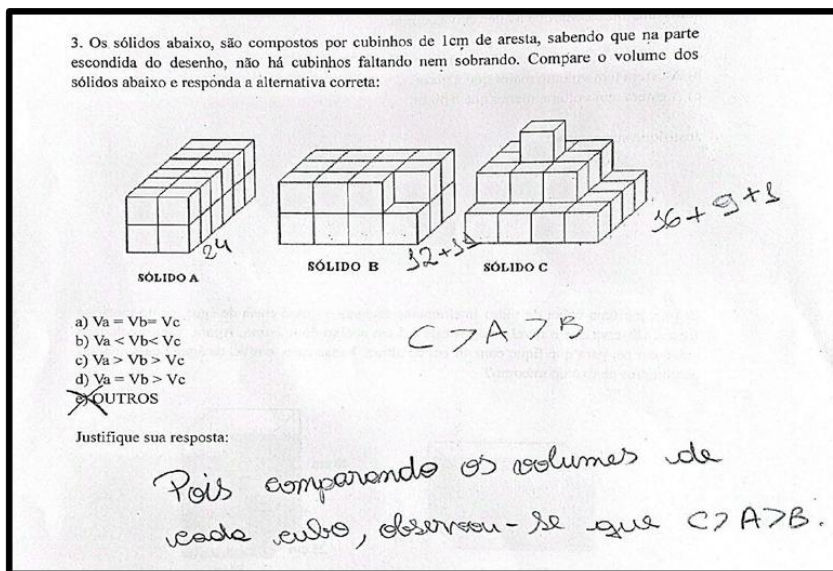 3. Os sólidos abaixo, são compostos por cubinhos de 1cm de aresta, sabendo que na parte
escondida do desenho, não há cubinhos faltando nem sobrando. Compare o volume dos
sólidos abaixo e responda a alternativa correta:
24
12+
16+9+1
SÓLIDO A
SÓLIDO B
SÓLIDO C
a) Va = Vb= Vc
b) Va < Vb< Vc
c) Va > Vb > Vc
d) Va = Vb > Vc
e) OUTROS
C>A>B
Justifique sua resposta:
Pois comparando os volumes de
cada cubo, observou-se que C>A>B.